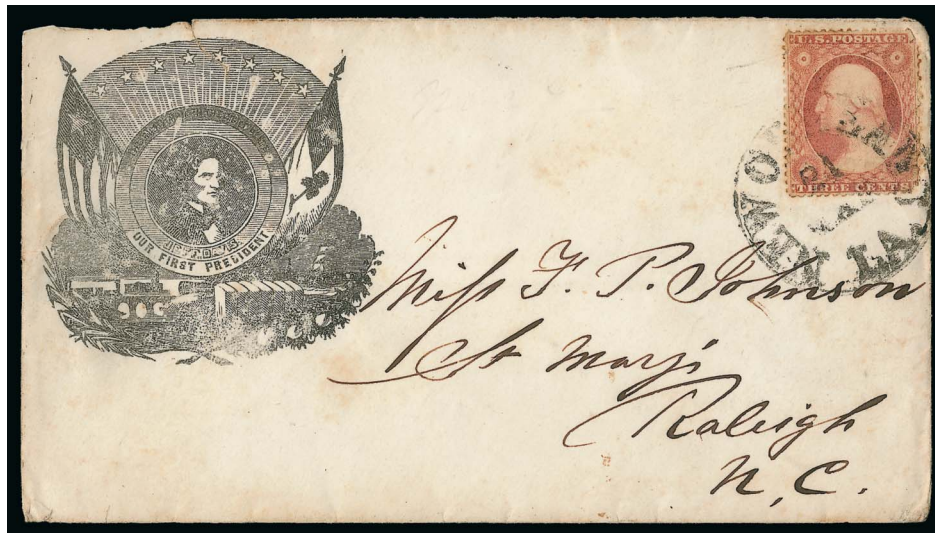 JEFF. DAVIS
OUR FIRST PRESIDENT
U.S. POSTAGE
THREE CENTS
NEW O LA
21
Miss F. P. Johnson
St Mary's
Raleigh
N, C.